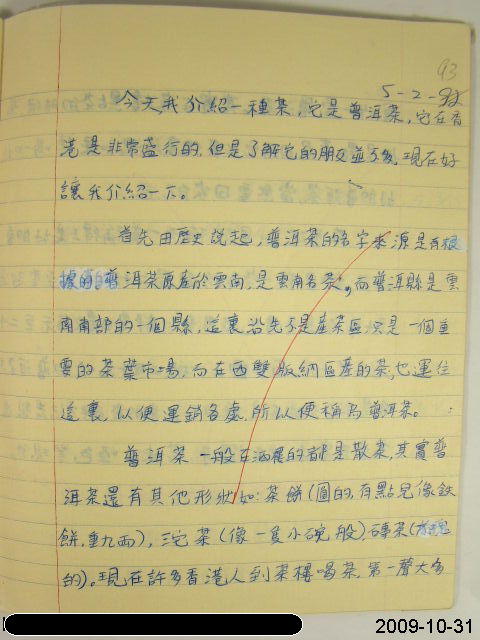 93
5-2-92
今天我介紹一種茶,它是普洱茶,它在香
港是非常盛行的,但是了解它的朋友並不多,現在好
讓我介紹一下。
首先由歷史說起,普洱茶的名字來源是有根
據的,普洱茶原產於雲南,是雲南名茶,而普洱縣是雲
南南部的一個縣,這裏沿先不是產茶區,只是一個重
要的茶葉市場,而在西雙版納區產的茶,也運往
這裏,以便運銷各處,所以便稱為普洱茶。
普洱茶一般在酒樓的都是散茶,其實普
洱茶還有其他形狀如:茶餅(圓的,有點兒像鉄
餅,重九両),沱茶(像一隻小碗般),磚茶(
的)。現在許多香港人到茶樓喝茶,第一聲大多
2009-10-31